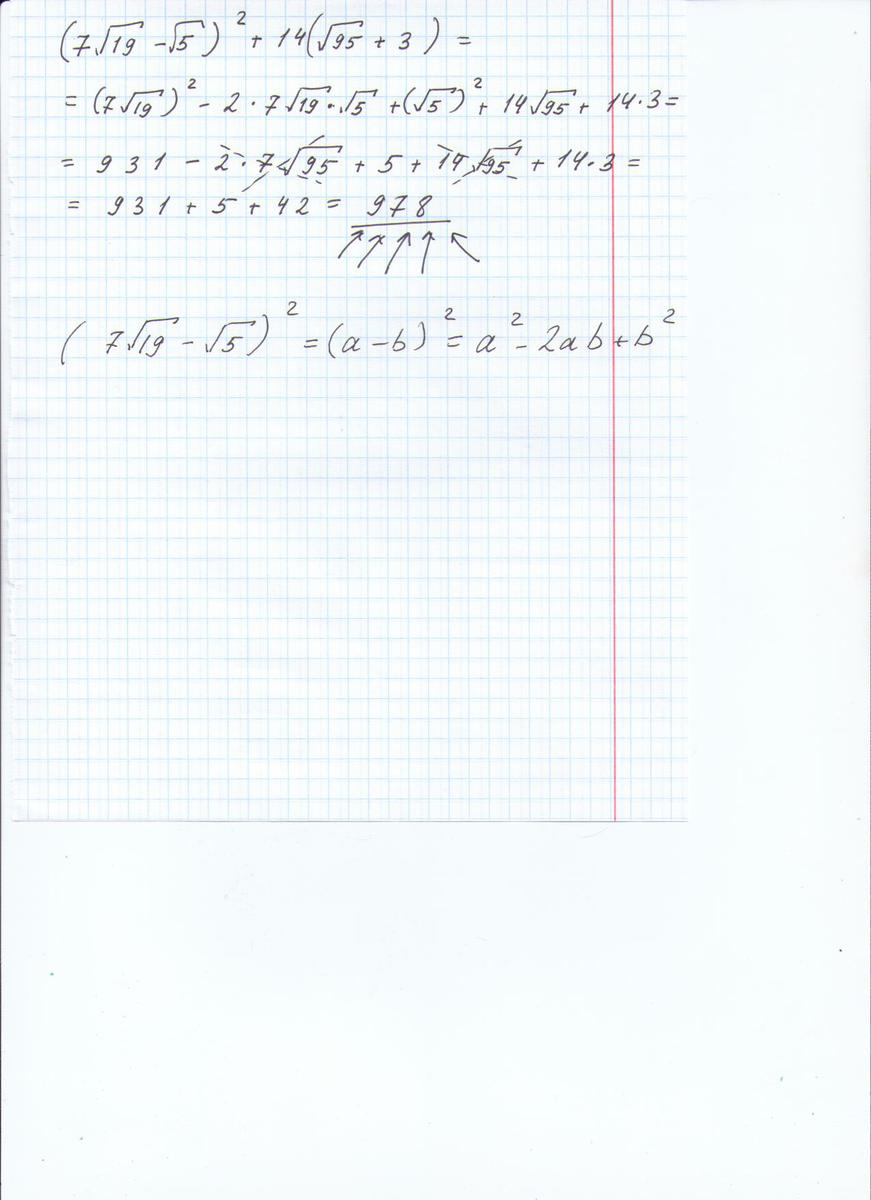 (7√19 - √5)² + 14(√95 + 3) =
= (7√19)² - 2·7√19·√5 + (√5)² + 14√95 + 14·3 =
= 931 - 2·7√95 + 5 + 14√95 + 14·3 =
= 931 + 5 + 42 = 978
(7√19 - √5)² = (a - b)² = a² - 2ab + b²